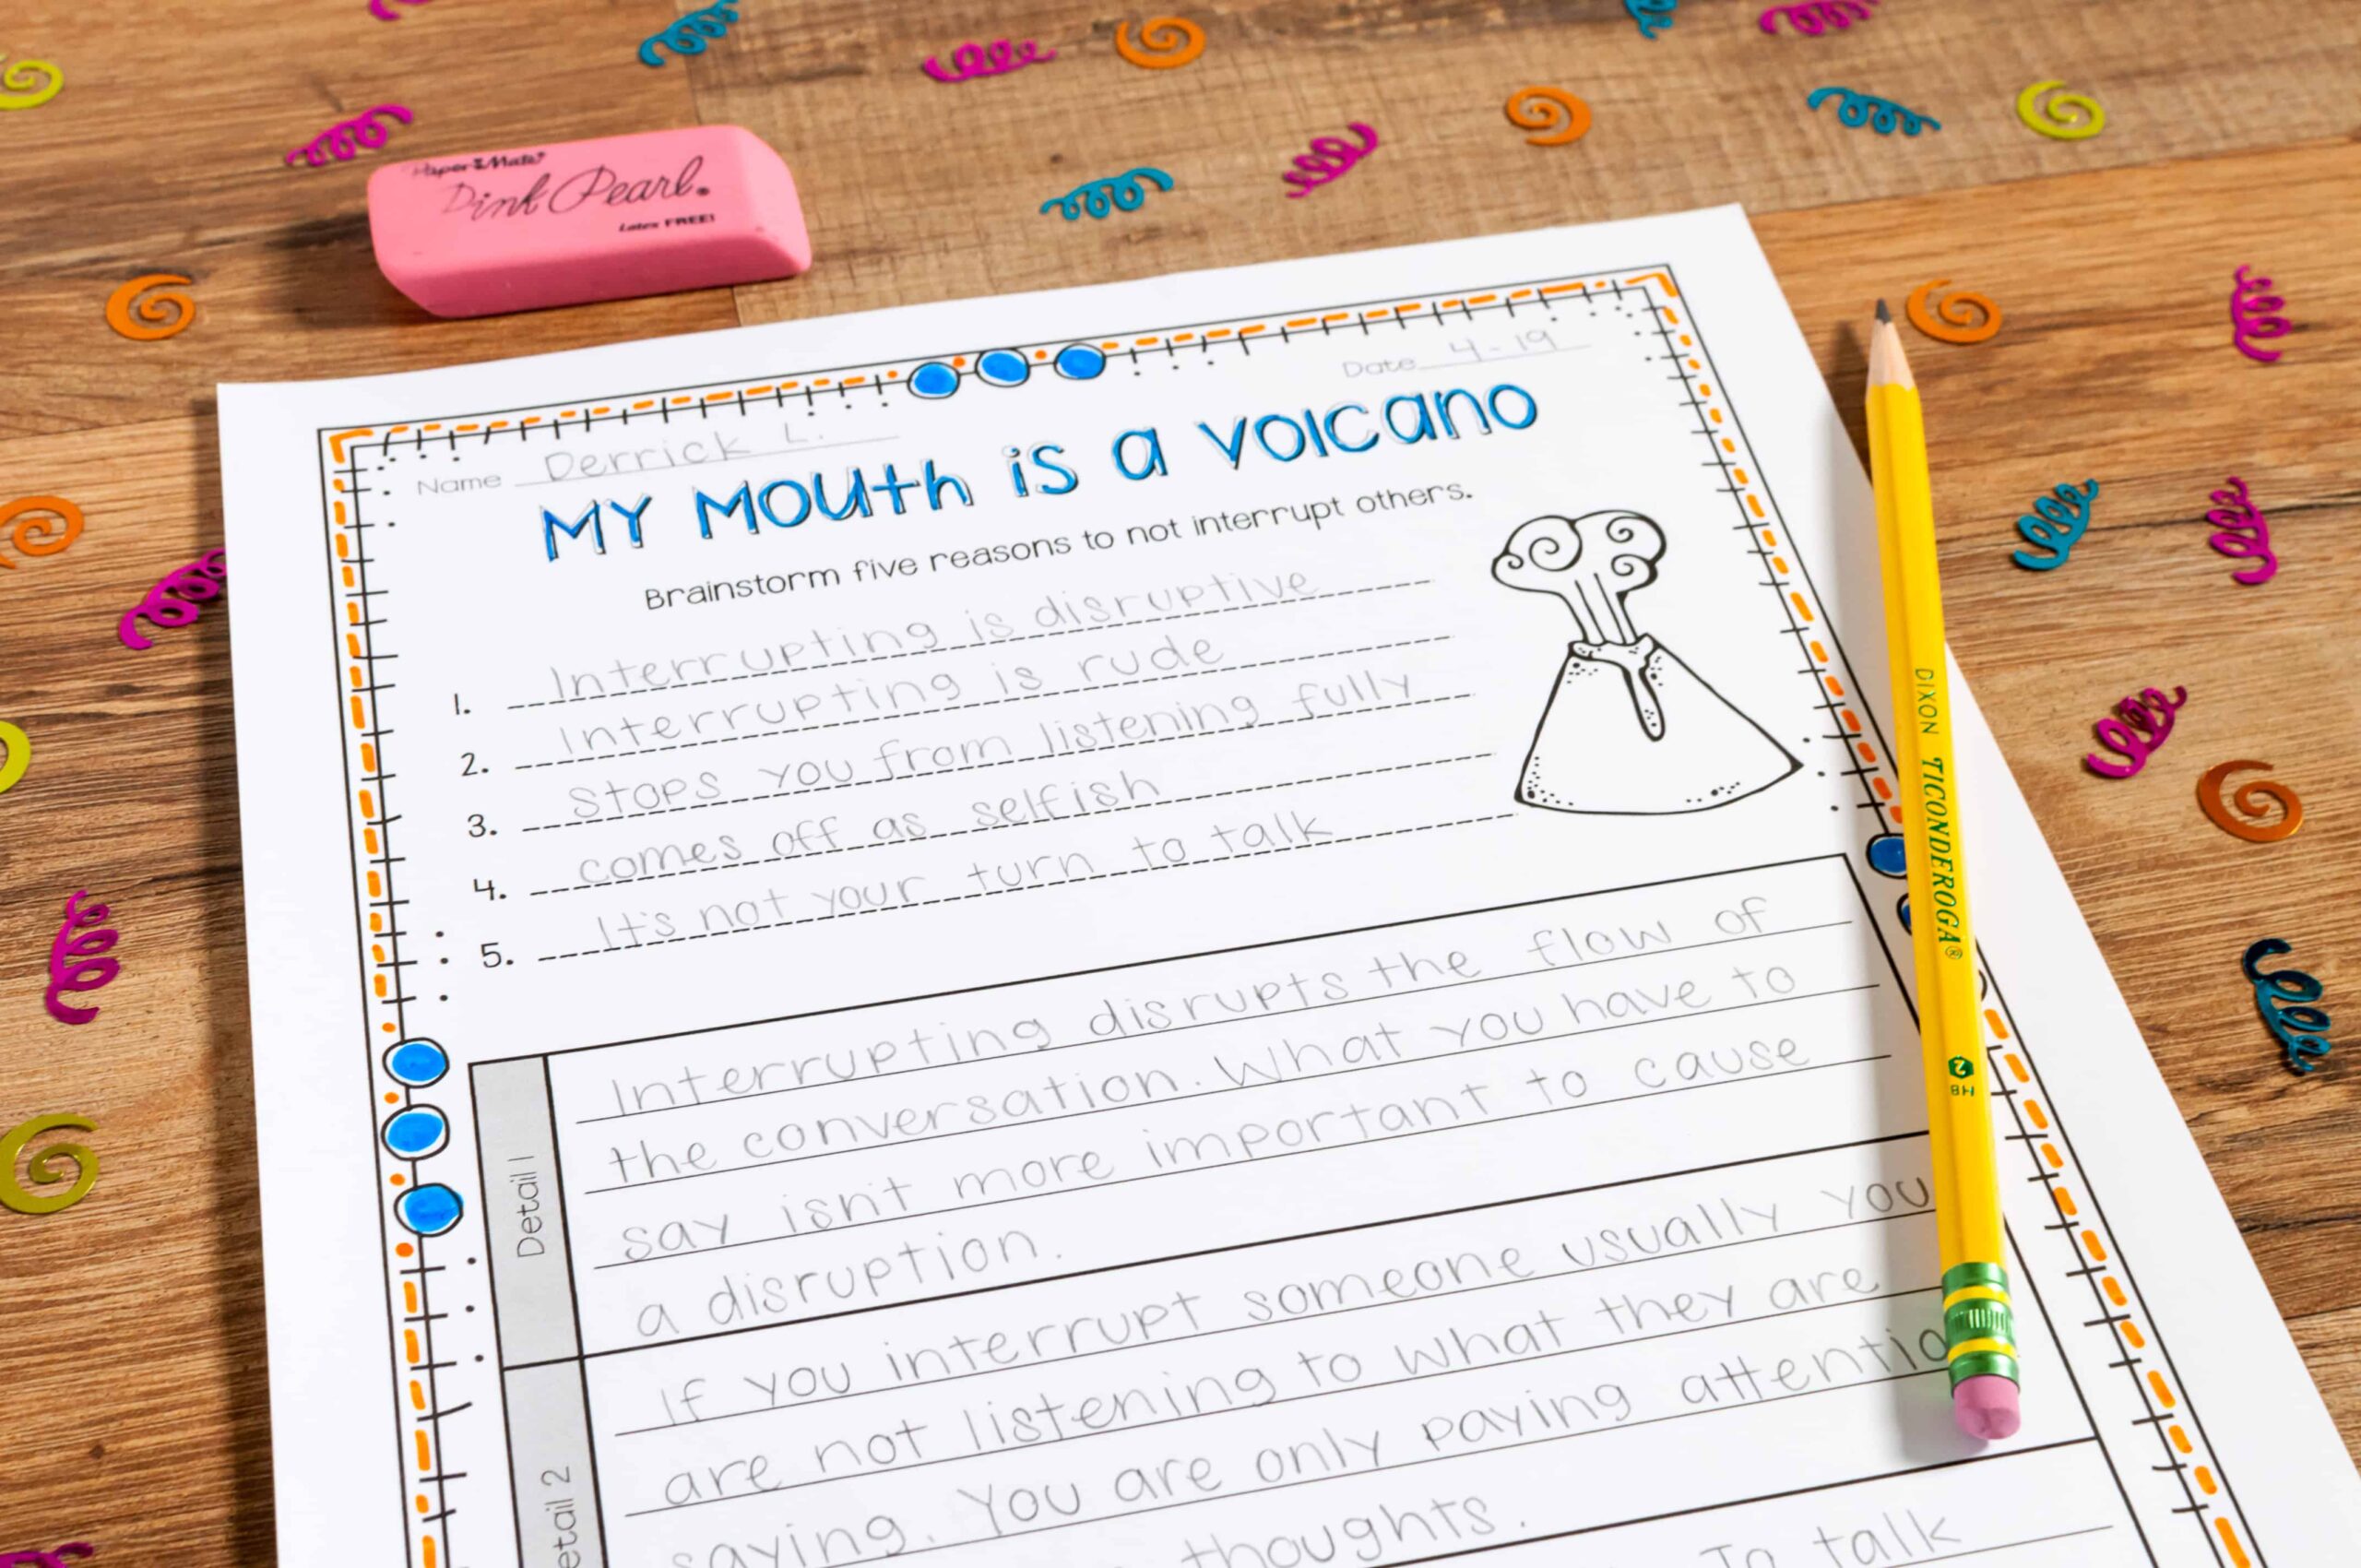 Paper Mate
Pink Pearl®
Latex FREE!
Date 4-19
Name Derrick L.
MY MOUth iS a VOlcano
Brainstorm five reasons to not interrupt others.
1. Interrupting is disruptive
2. Interrupting is rude
3. Stops you from listening fully
4. comes off as selfish
5. It's not your turn to talk
Detail 1
Interrupting disrupts the flow of
the conversation. What you have to
say isn't more important to cause
a disruption.
If you interrupt someone usually you
are not listening to what they are
saying. You are only paying attentio
thoughts.
To talk
etail 2
DIXON TICONDEROGA®
2
HB